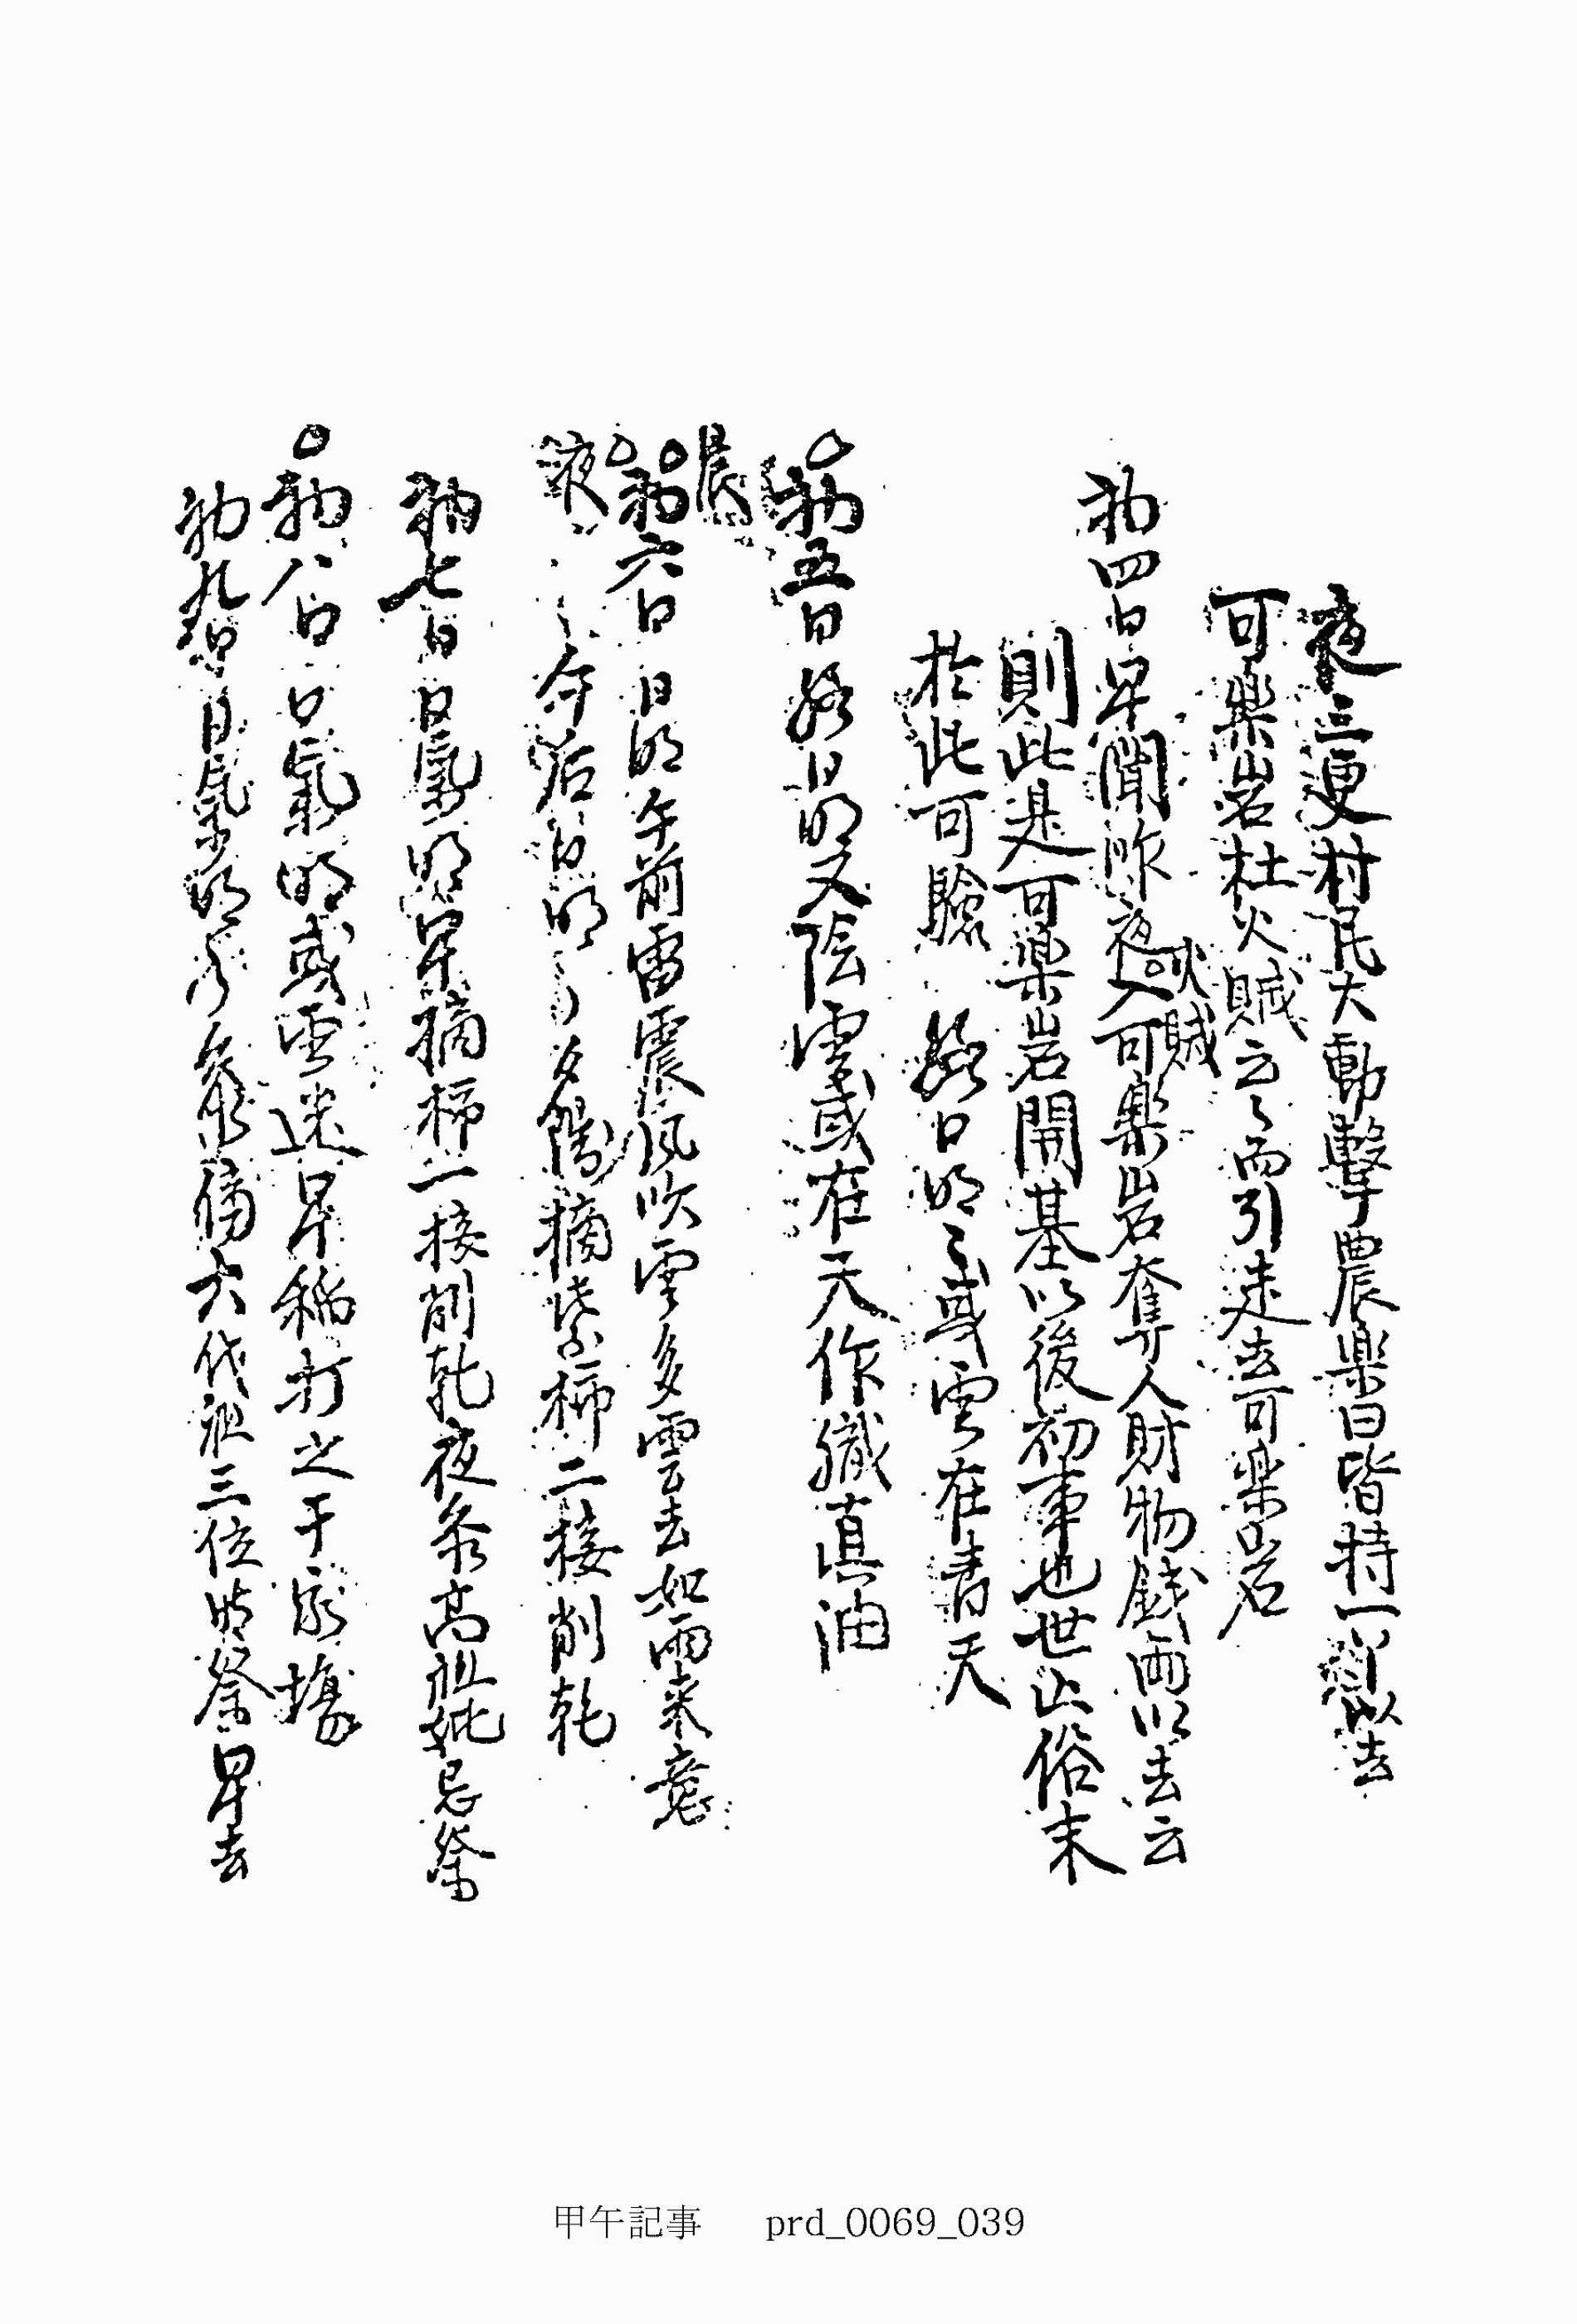 夜三更村民大動擊農樂曰皆持一以去
可樂岩杜火賊云々而引走去可樂岩
初四日早聞昨夜火賊入可樂岩奪人財物錢兩以去云
則此是可樂岩開基以後初事也世止俗末
於此可驗 終日明々或雲在青天
初五日終日明又陰雲或在天作職真油
晨
初六日日明午前雷震風吹雲多雲去如雨來意
夜
午后日明夕陽摘柿二接削乾
初七日日氣明早摘柿一接削乾夜參高祖妣忌祭
初八日日氣明或雲迷早稻打之于家場
初九日日氣明參傍六代祖三位時祭早去
甲午記事 prd_0069_039